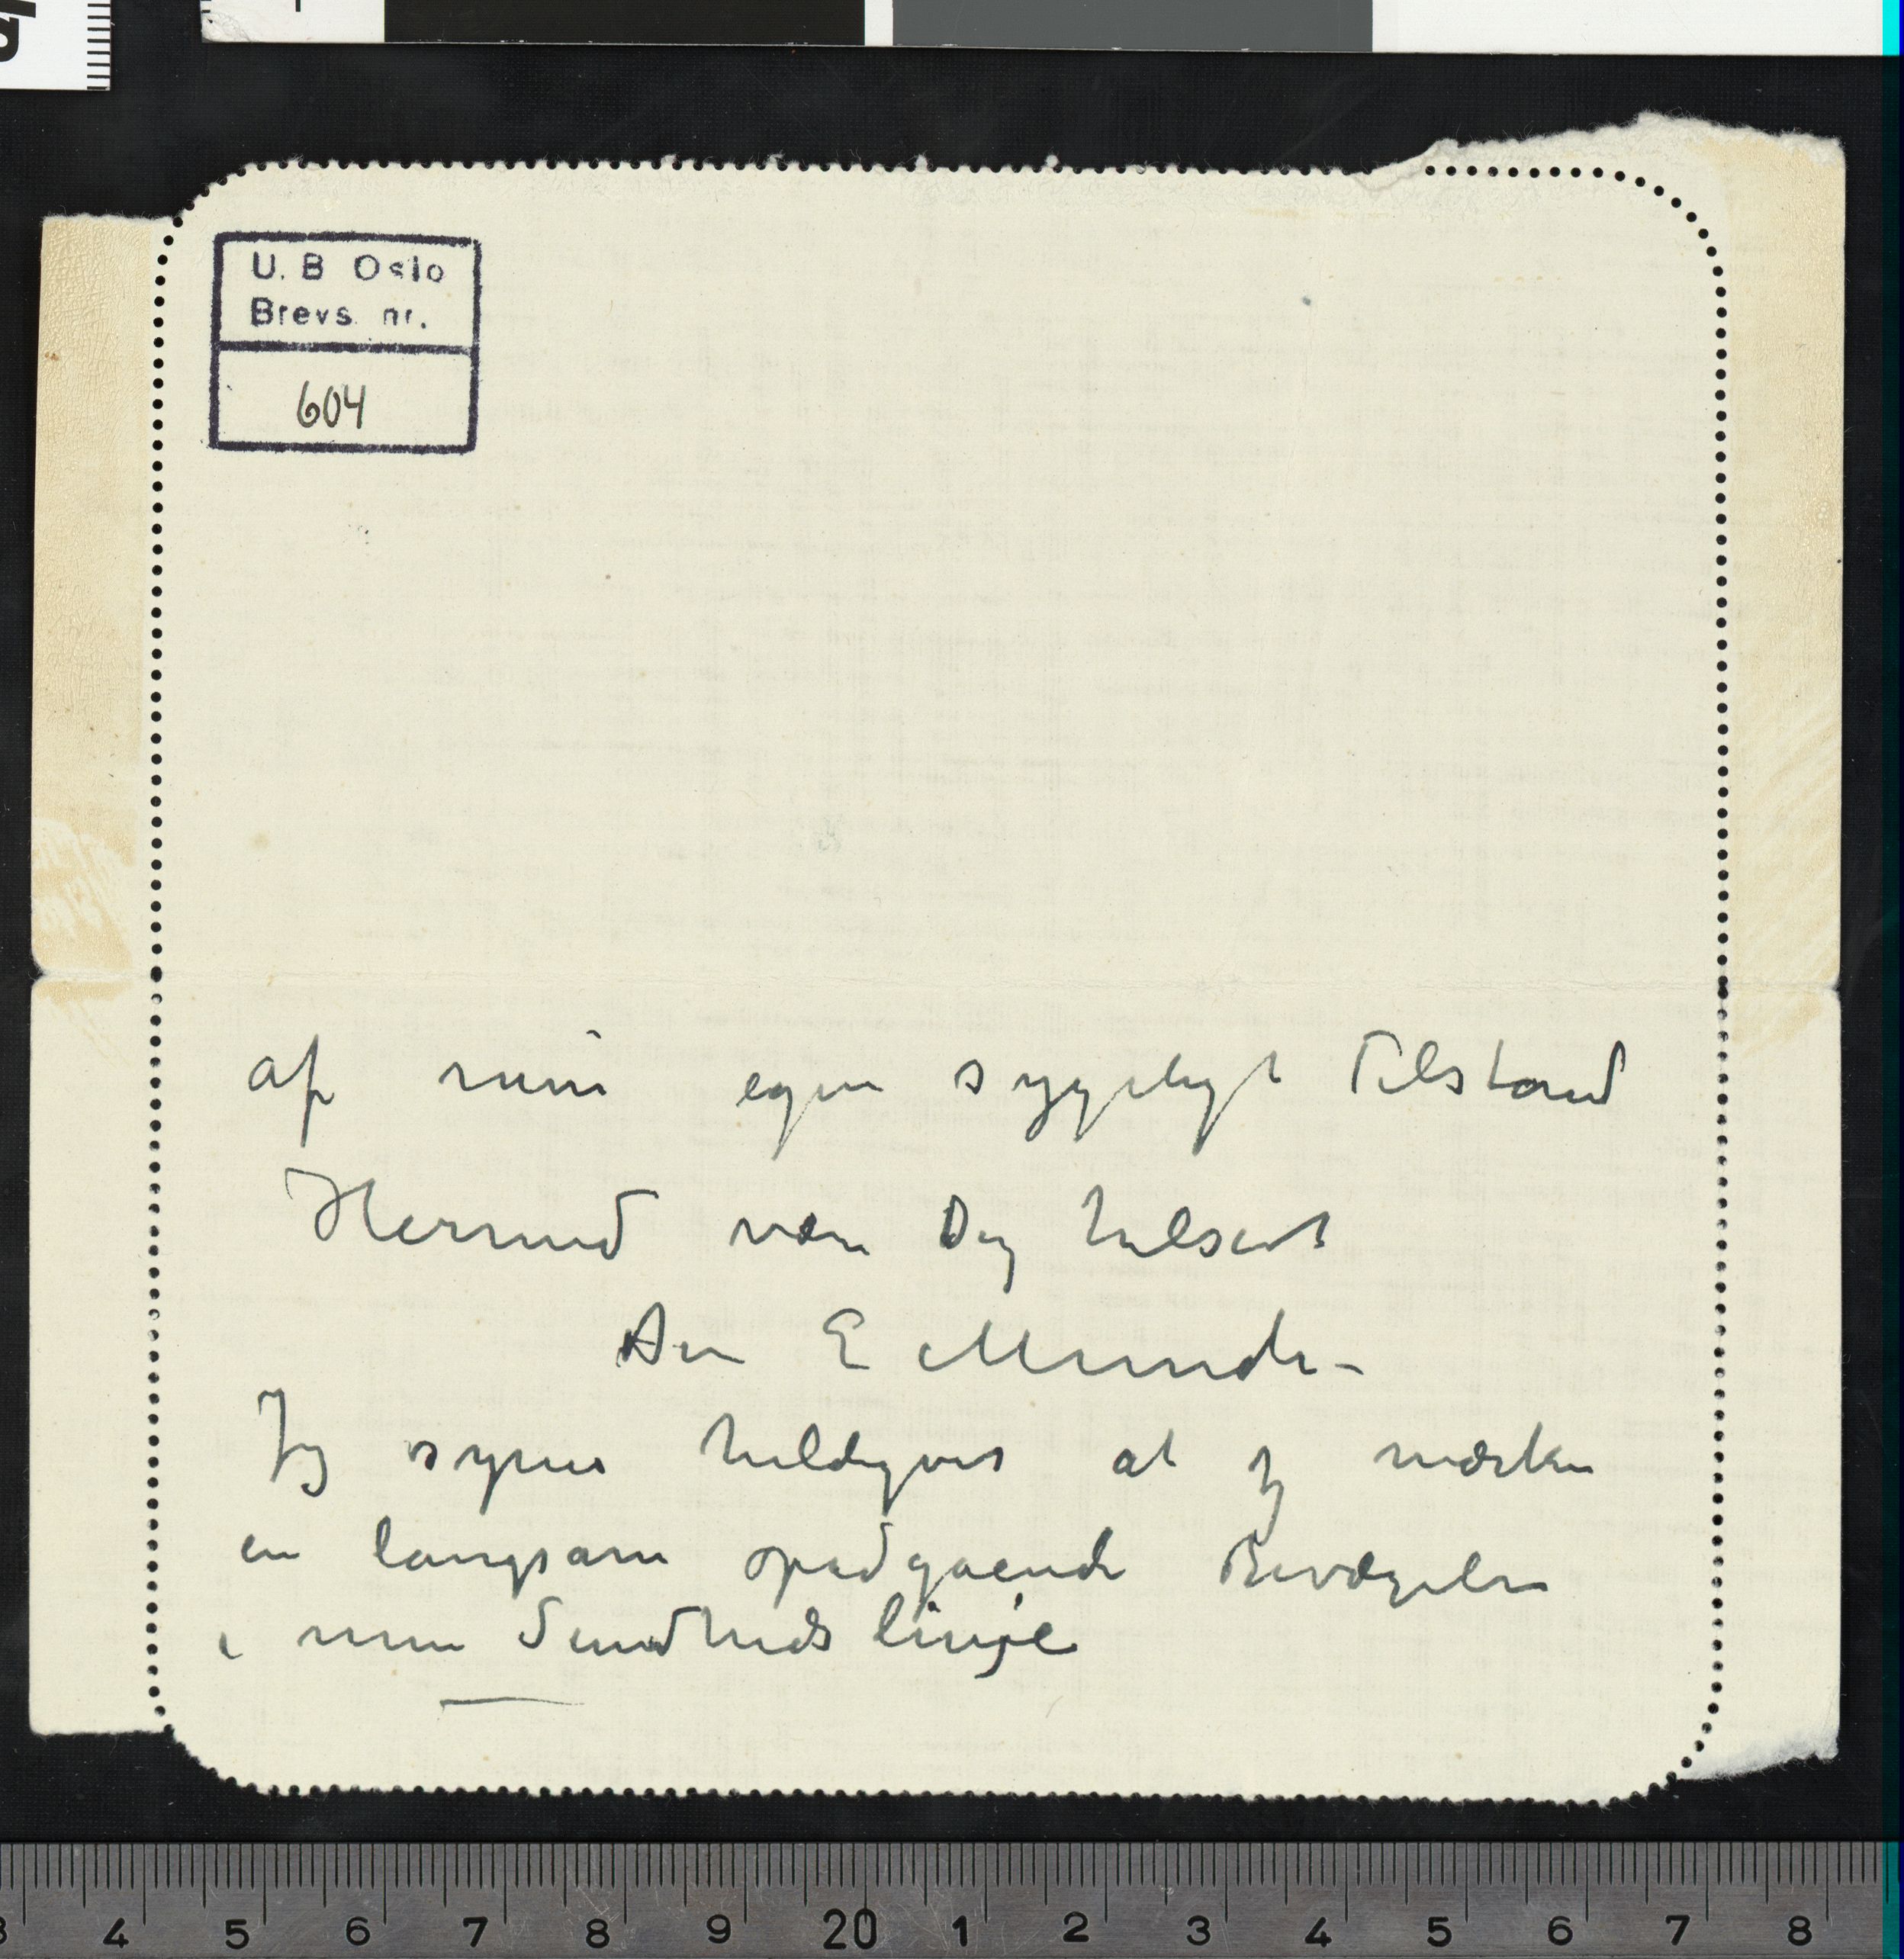 U. B Oslo
Brevs. nr.
604
af min egen sygeligt Tilstand
Hermed være Dig hilsent
Din E Munch –
Jeg synes heldigvis at jeg mærker
en langsam opadgaaende Bevægelse
i min Sundhedslinje
3 4 5 6 7 8 9 20 1 2 3 4 5 6 7 8